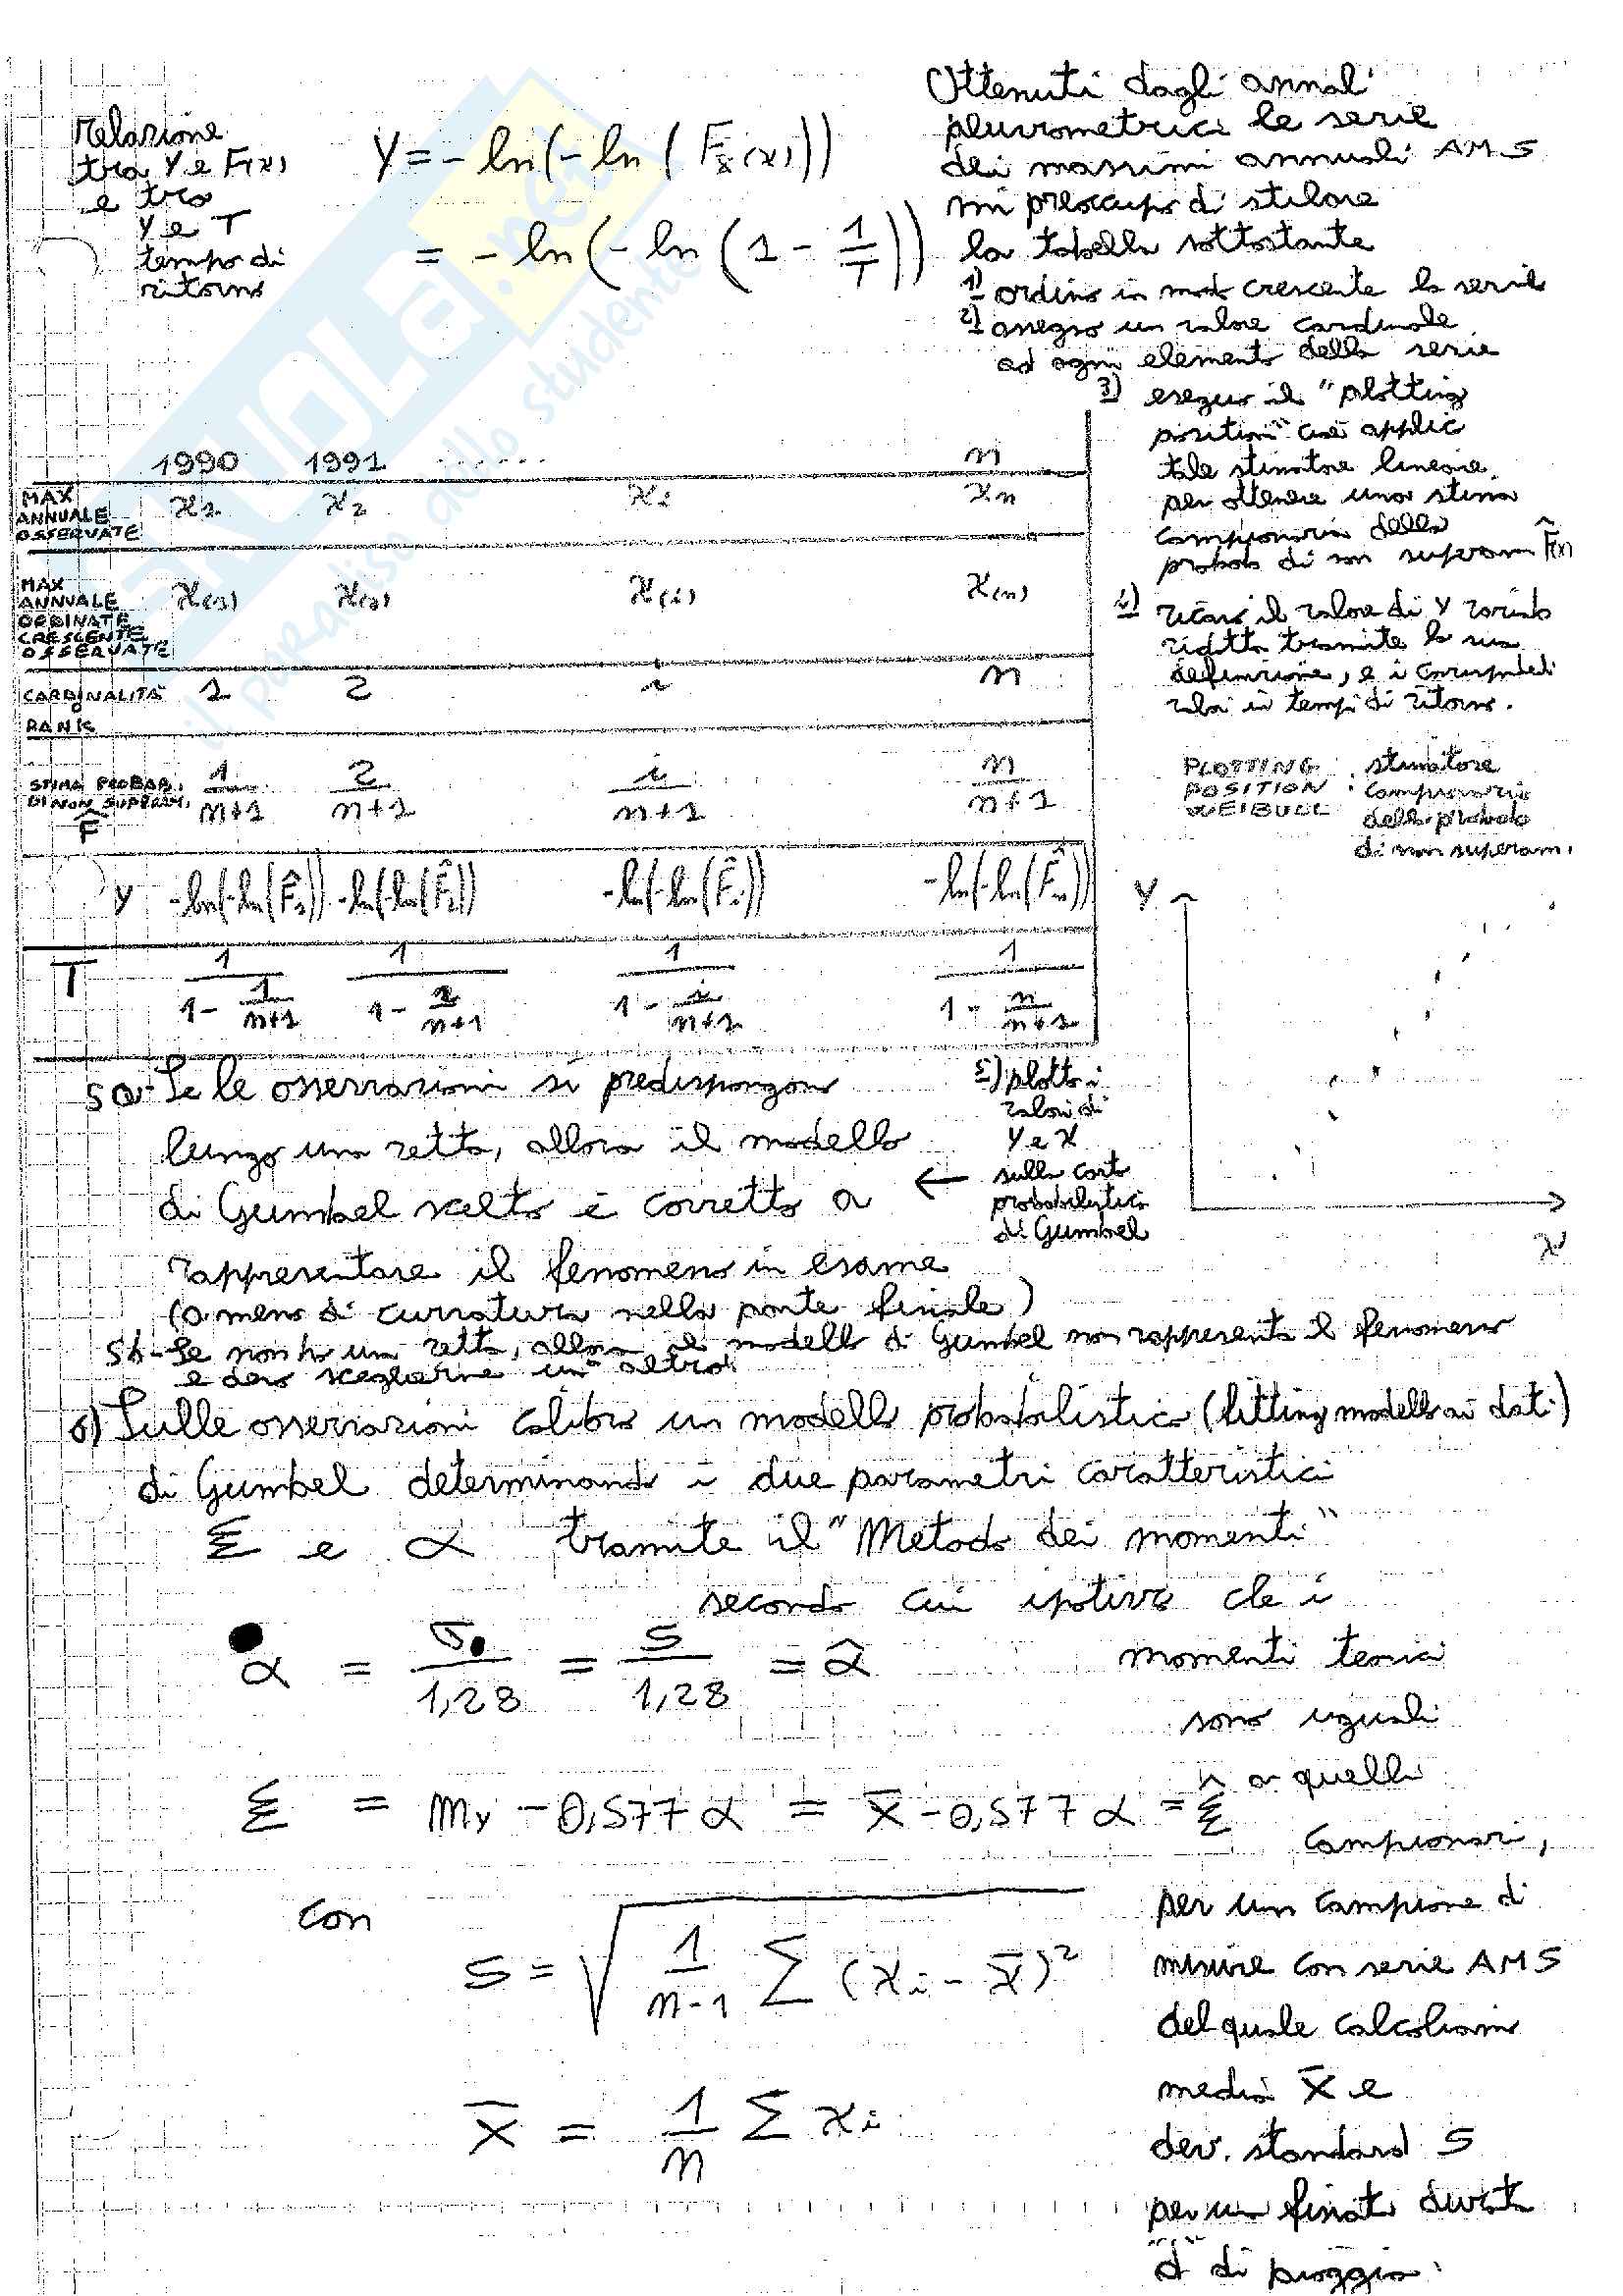 relazione
tra Y e F(x)
e tra
Y e T
tempo di
ritorno
Y = - ln(- ln ( Fx(x) ))
= - ln(- ln ( 1 - 1/T ))
Ottenuti dagli annali
pluviometrici le serie
dei massimi annuali AMS
mi preoccupo di stilare
la tabella sottostante
1) ordino in modo crescente la serie
2) assegno un valore cardinale
ad ogni elemento della serie
3) eseguo il "plotting
position" cioè applic
tale stimatore lineare
per ottenere una stima
campionaria della
probab di non superam F̂(x)
4) ricavo il valore di Y variab
ridotta tramite la sua
definizione, e i corrispondenti
valori in tempi di ritorno.
PLOTTING POSITION WEIBULL : stimatore
campionario
della probab
di non superam.
1990 1991 ....... n
MAX ANNUALE OSSERVATE x1 x2 xi xn
MAX ANNUALE ORDINATE CRESCENTE OSSERVATE x(1) x(2) x(i) x(n)
CARDINALITÀ RANK 1 2 i n
STIMA PROBAB. DI NON SUPERAM. F̂ 1/n+1 2/n+1 i/n+1 n/n+1
Y -ln(-ln(F̂1)) -ln(-ln(F̂2)) -ln(-ln(F̂i)) -ln(-ln(F̂n))
T 1/(1 - 1/n+1) 1/(1 - 2/n+1) 1/(1 - i/n+1) 1/(1 - n/n+1)
Y
x
5) plotto i
valori di
Y e X
← sulla carta
probabilistica
di Gumbel
5a- Se le osservazioni si predispongono
lungo una retta, allora il modello
di Gumbel scelto è corretto a
rappresentare il fenomeno in esame
(a meno di curvatura nella parte finale)
5b- Se non ho una retta, allora il modello di Gumbel non rappresenta il fenomeno
e devo sceglierne un altro.
6) Sulle osservazioni calibro un modello probabilistico (fitting modello ai dati)
di Gumbel determinando i due parametri caratteristici
ξ e α tramite il "Metodo dei momenti"
secondo cui ipotizzo che i
momenti teorici
sono uguali
a quelli
campionari,
α = σ/1,28 = S/1,28 = α̂
ξ = my - 0,577 α = x̄ - 0,577 α = ξ̂
con
S = √( 1/n-1 Σ (xi - x̄)² )
x̄ = 1/n Σ xi
per un campione di
misure con serie AMS
del quale calcoliamo
media x̄ e
dev. standard S
per una fissata durata
"d" di pioggia.
il paradiso dello studente
SKUOLA.net